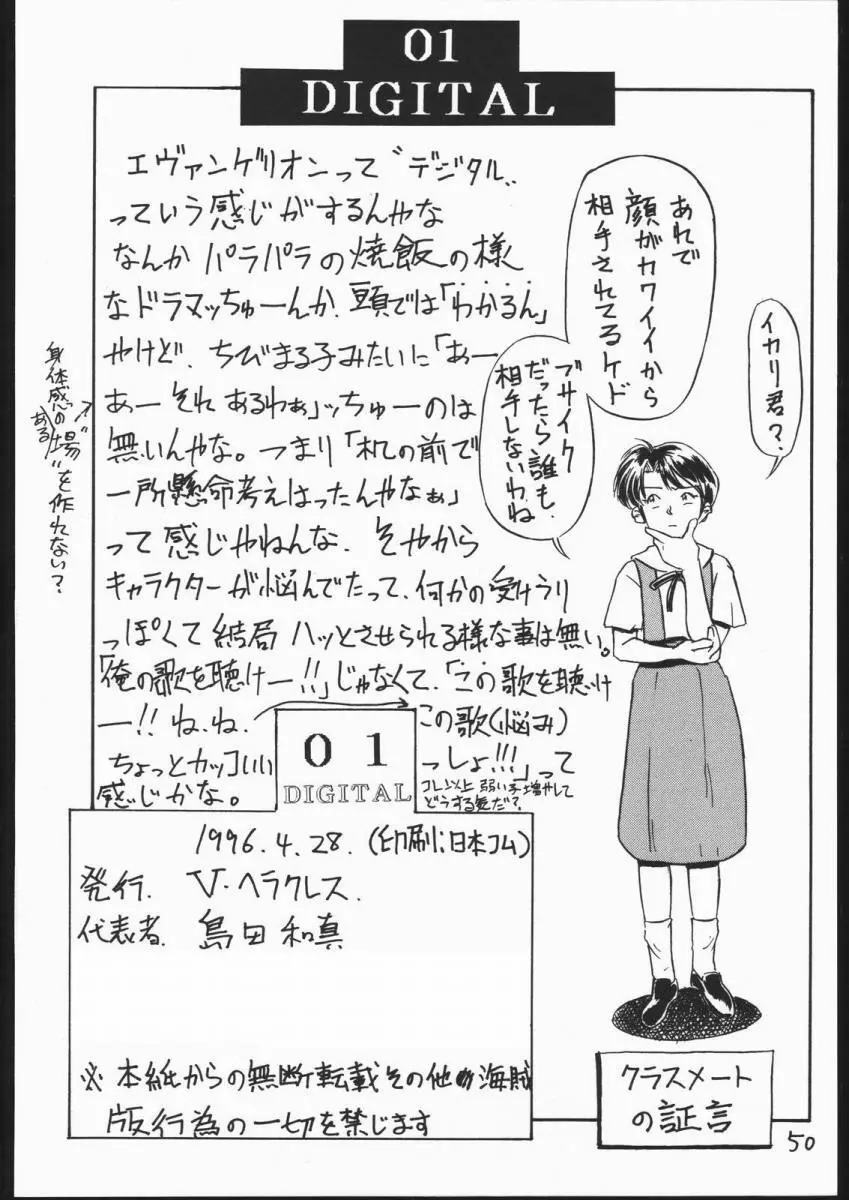 01
DIGITAL
エヴァンゲリオンって〝デジタル〟
っていう感じがするんやな
なんかパラパラの焼飯の様
なドラマッちゅーんか、頭では「わかるん」
やけど、ちびまる子みたいに「あー
あー それ あるわぁ」ッちゅーのは
無いんやな。つまり「机の前で
一所懸命考えはったんやなぁ」
って感じやねんな、そやから
キャラクターが悩んでたって、何かの受けうり
っぽくて結局 ハッとさせられる様な事は無い。
「俺の歌を聴けー!!」じゃなくて、「この歌を聴け
ー!! ね、ね、
この歌(悩み)
ちょっとカッコいい
っしょ!!!」って
感じかな。
コレ以上 弱い子増やして
どうする気だ?
身体感の
ある
〝場〟を作れない?
あれで
顔がカワイイから
相手されてるケド
ブサイク
だったら誰も
相手しないわね
イカリ君?
01
DIGITAL
1996.4.28.(印刷;日本コム)
発行. V・ヘラクレス.
代表者. 島田和真
※本紙からの無断転載その他の海賊
版行為の一切を禁じます
クラスメート
の証言
50